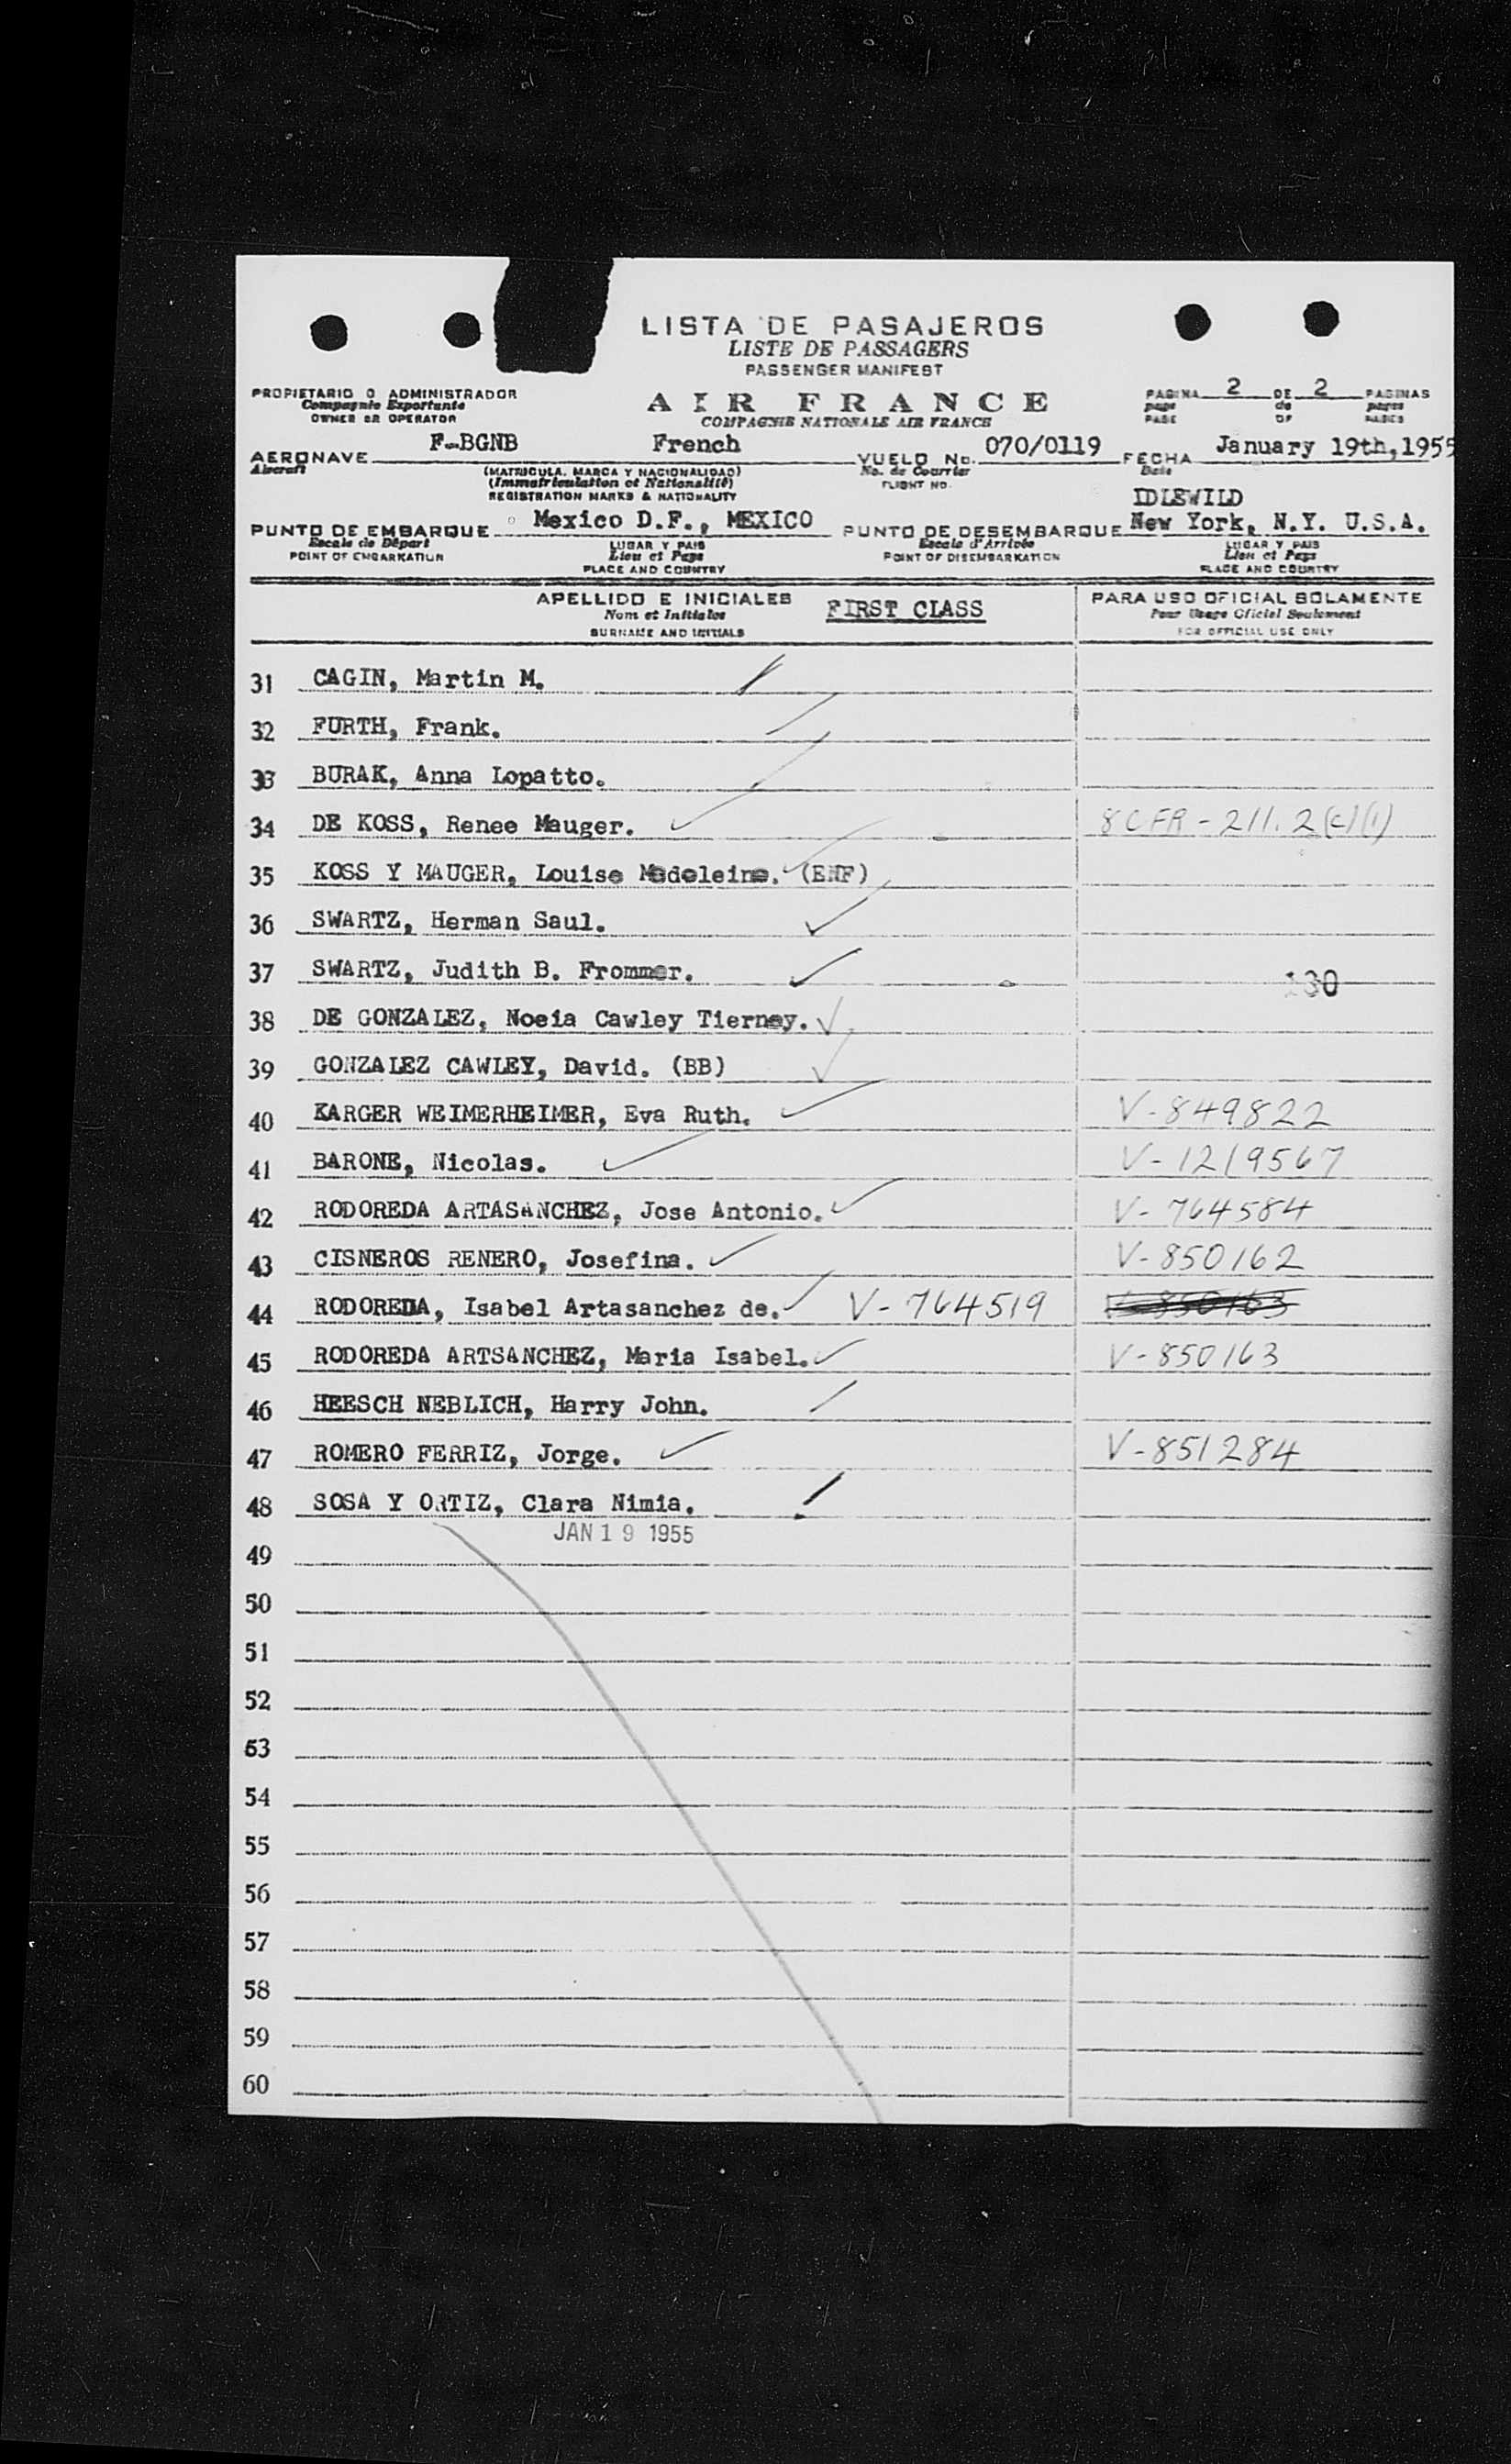 LISTA DE PASAJEROS
LISTE DE PASSAGERS
PASSENGER MANIFEST
PROPIETARIO O ADMINISTRADOR
Compagnie Exportante
OWNER OR OPERATOR
AIR FRANCE
COMPAGNIE NATIONALE AIR FRANCE
PAGINA 2 DE 2 PAGINAS
page de pages
PAGE OF PAGES
AERONAVE F-BGNB French VUELO No. 070/0119 FECHA January 19th, 1955
Aircraft (MATRICULA, MARCA Y NACIONALIDAD) No. de Courrier Date
(Immatriculation et Nationalité) FLIGHT NO.
REGISTRATION MARKS & NATIONALITY
IDLEWILD
PUNTO DE EMBARQUE Mexico D.F., MEXICO PUNTO DE DESEMBARQUE New York, N.Y. U.S.A.
Escale de Départ LUGAR Y PAIS Escale d'Arrivée LUGAR Y PAIS
POINT OF EMBARKATION Lieu et Pays POINT OF DISEMBARKATION Lieu et Pays
PLACE AND COUNTRY PLACE AND COUNTRY
APELLIDO E INICIALES FIRST CLASS PARA USO OFICIAL SOLAMENTE
Nom et Initiales Pour Usage Oficiel Seulement
SURNAME AND INITIALS FOR OFFICIAL USE ONLY
31 CAGIN, Martin M.
32 FURTH, Frank.
33 BURAK, Anna Lopatto.
34 DE KOSS, Renee Mauger. 8 CFR - 211.2(c)(1)
35 KOSS Y MAUGER, Louise Madeleine. (ENF)
36 SWARTZ, Herman Saul.
37 SWARTZ, Judith B. Frommer. 130
38 DE GONZALEZ, Noeia Cawley Tierney.
39 GONZALEZ CAWLEY, David. (BB)
40 KARGER WEIMERHEIMER, Eva Ruth. V-849822
41 BARONE, Nicolas. V-1219567
42 RODOREDA ARTASANCHEZ, Jose Antonio. V-764584
43 CISNEROS RENERO, Josefina. V-850162
44 RODOREDA, Isabel Artasanchez de. V-764519 V-850163
45 RODOREDA ARTSANCHEZ, Maria Isabel. V-850163
46 HEESCH NEBLICH, Harry John.
47 ROMERO FERRIZ, Jorge. V-851284
48 SOSA Y ORTIZ, Clara Nimia.
JAN 19 1955
49
50
51
52
53
54
55
56
57
58
59
60